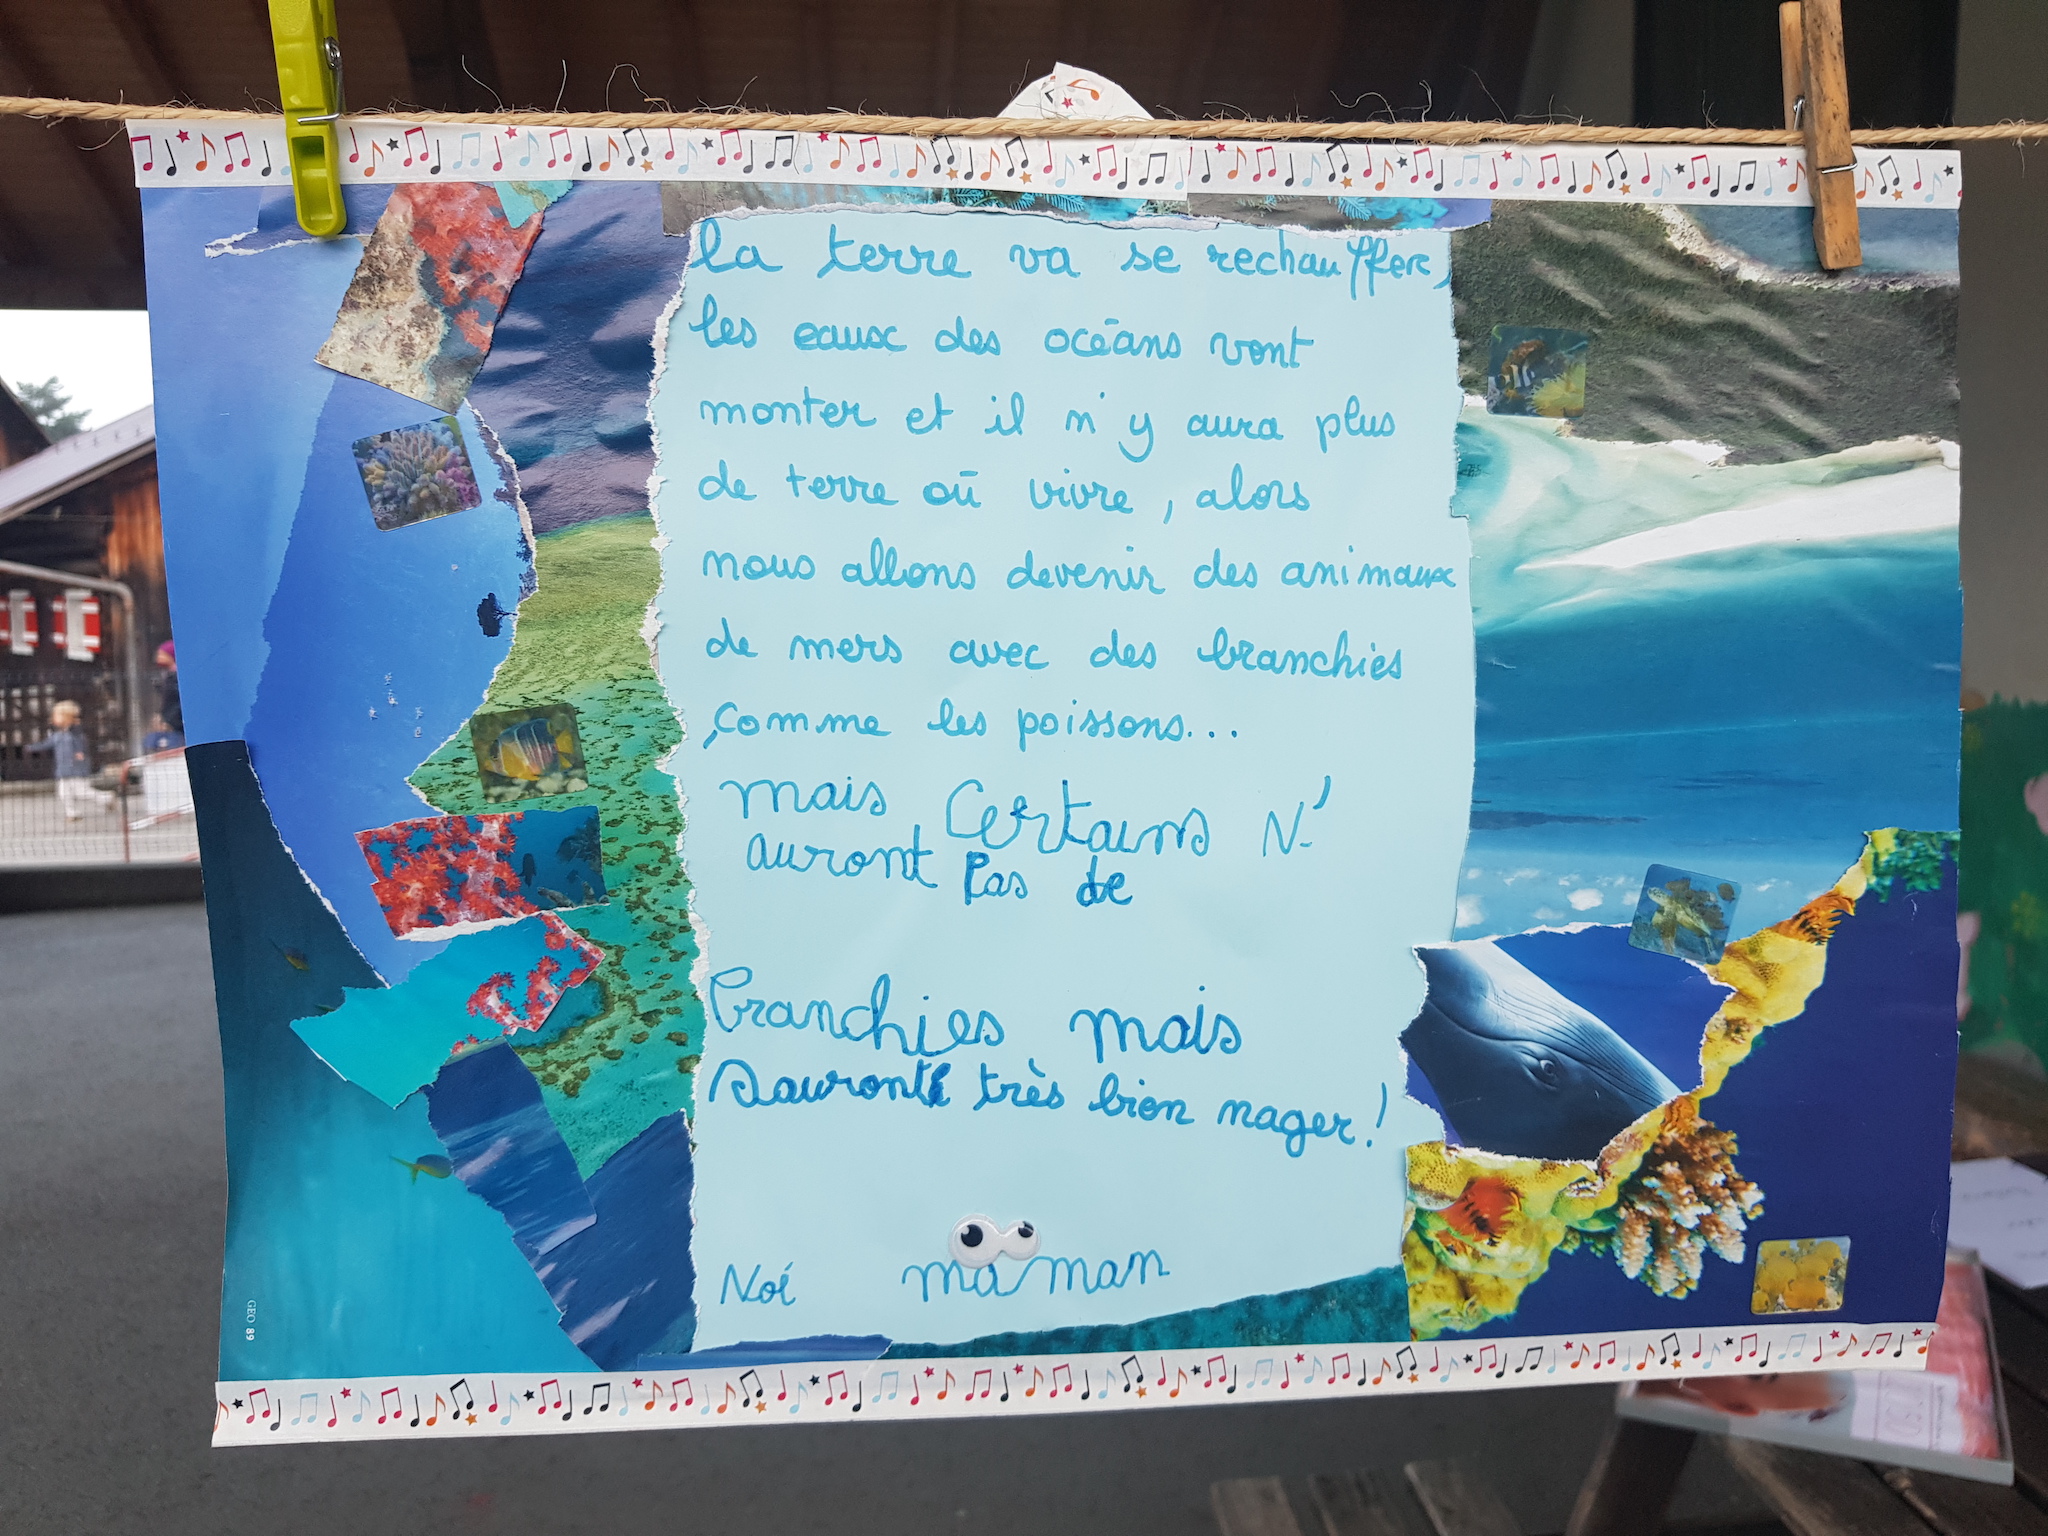 la terre va se rechauffer,
les eaux des océans vont
monter et il n'y aura plus
de terre où vivre, alors
nous allons devenir des animaux
de mers avec des branchies
comme les poissons...
mais Certains N'
auront Pas de
branchies mais
Sauront très bien nager!
Noé maman
GEO 89